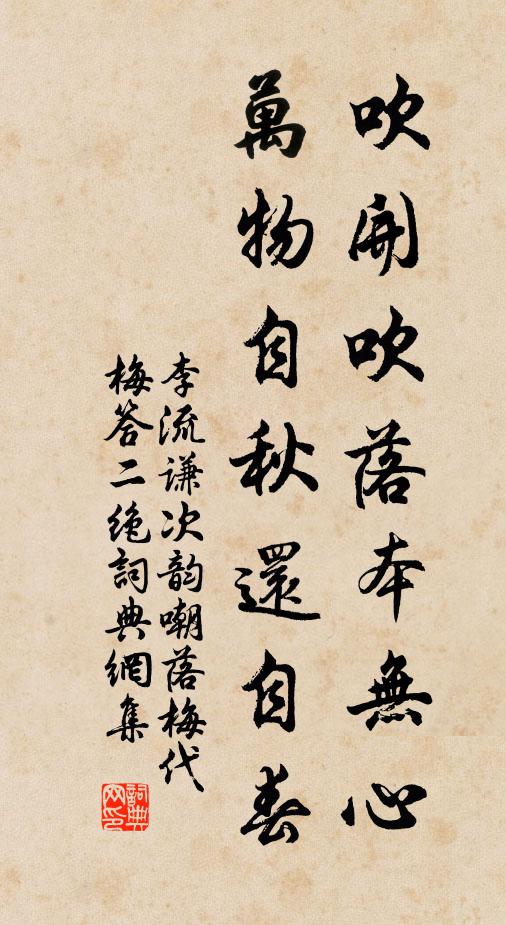 吹開吹落本無心
萬物自秋還自春
李流謙次韵嘲落梅代
梅答二绝詞典網集
詞典网印